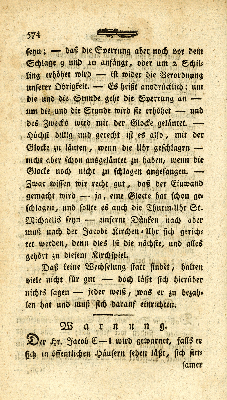 574
seyn; — daß die Sperrung aber noch vor dem
Schlage 9 und 10 anfängt, oder um 2 Schil-
ling erhöhet wird — ist wider die Verordnung
unserer Obrigkeit. — Es heißt ausdrücklich: um
die und die Stunde geht die Sperrung an —
um die und die Stunde wird sie erhöhet — und
des Zwecks wird mit der Glocke geläutet. —
Höchst billig und gerecht ist es also, mit der
Glocke zu läuten, wenn die Uhr geschlagen —
nicht aber schon ausgeläutet zu haben, wenn die
Glocke noch nicht zu schlagen angefangen. —
Zwar wissen wir recht gut, daß der Einwand
gemacht wird — ja, eine Glocke hat schon ge-
schlagen, und sollte es auch die Thurm-Uhr St.
Michaelis seyn — unserm Dünken nach aber
muß nach der Jacobi Kirchen-Uhr sich gerich-
tet werden, denn dies ist die nächste, und alles
gehört zu diesem Kirchspiel.
Daß keine Wechselung statt findet, halten
viele nicht für gut — doch läßt sich hierüber
nichts sagen — jeder weiß, was er zu bezah-
len hat und muß sich darauf einrichten.
Warnung.
Der Hr. Jacob C—l wird gewarnet, falls er
sich in öffentlichen Häusern sehen läßt, sich sitt-
samer